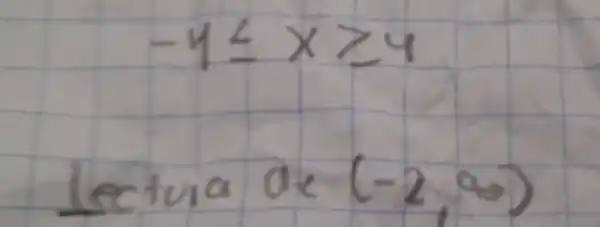 -4 ≤ x ≥ 4
Lectura de (-2, ∞)